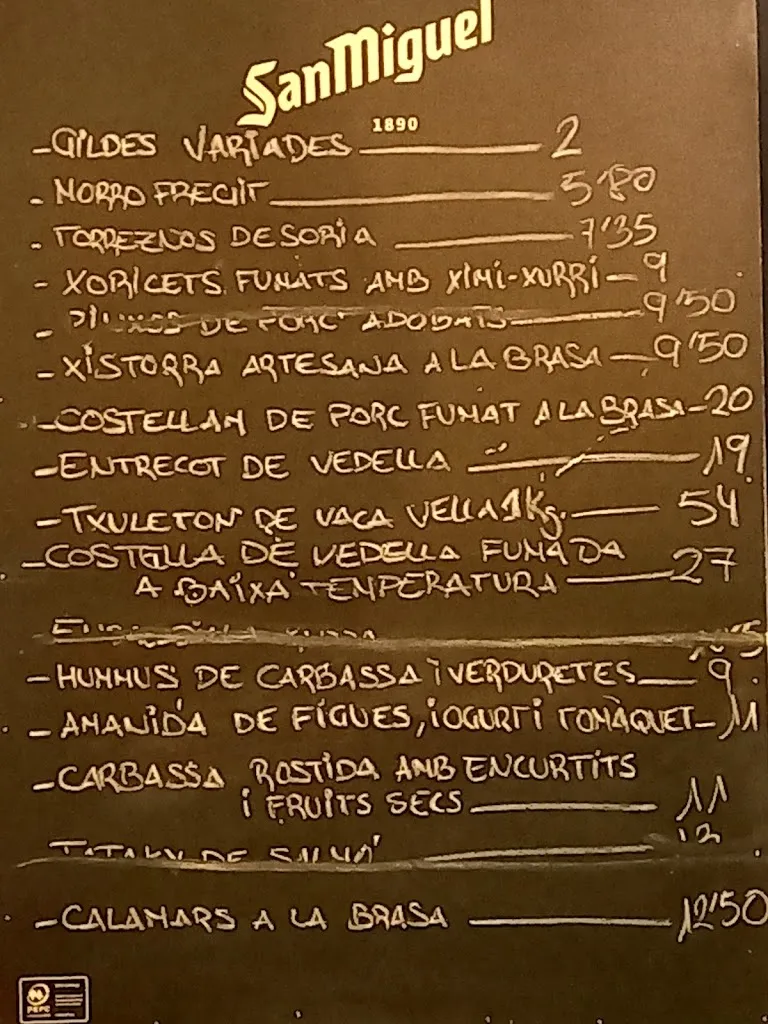 SanMiguel
1890
- GILDES VARIADES 2
- MORRO FREGIT 5'80
- TORREZNOS DE SORIA 7'35
- XORICETS FUMATS AMB XIMI-XURRI - 9
- DE PORC ADOBATS 9'50
- XISTORRA ARTESANA A LA BRASA - 9'50
- COSTELLAM DE PORC FUMAT A LA BRASA - 20
- ENTRECOT DE VEDELLA 19
- TXULETON DE VACA VELLA 1Kg. 54
- COSTELLA DE VEDELLA FUMADA
A BAIXA TEMPERATURA 27
- HUMMUS DE CARBASSA I VERDURETES 9
- AMANIDA DE FIGUES, IOGURT I TOMÀQUET - 11
- CARBASSA ROSTIDA AMB ENCURTITS
I FRUITS SECS 11
TATAKY DE SALMÓ 12
- CALAMARS A LA BRASA 12'50
PEFC